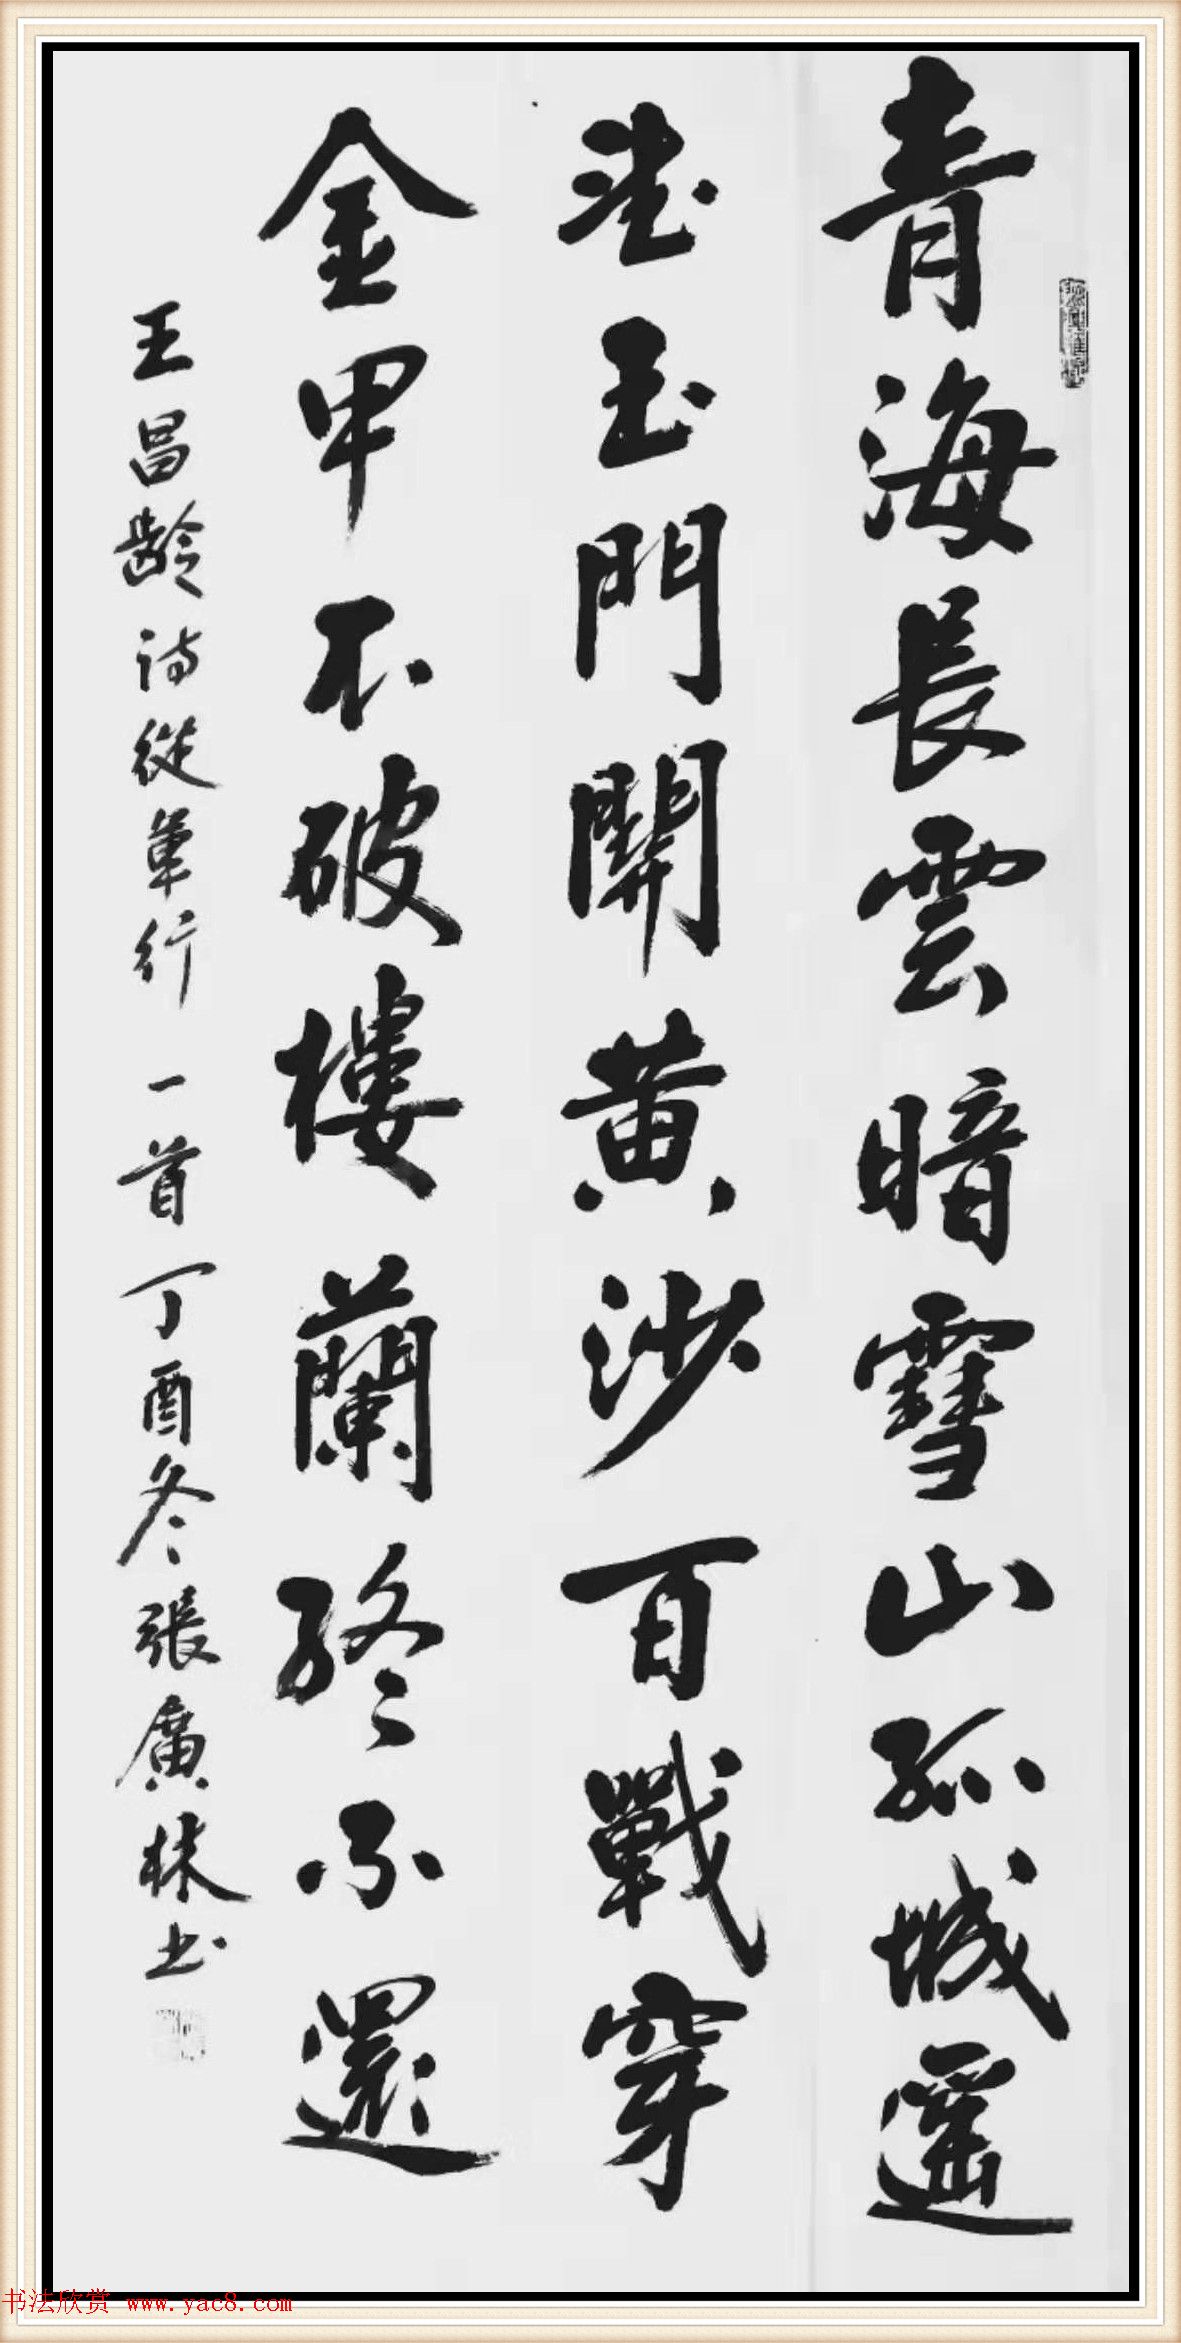 青海長雲暗雪山孤城遥
望玉門關黄沙百戰穿
金甲不破樓蘭終不還
王昌齡詩從軍行一首丁酉冬張廣林书
书法欣赏 www.yac8.com